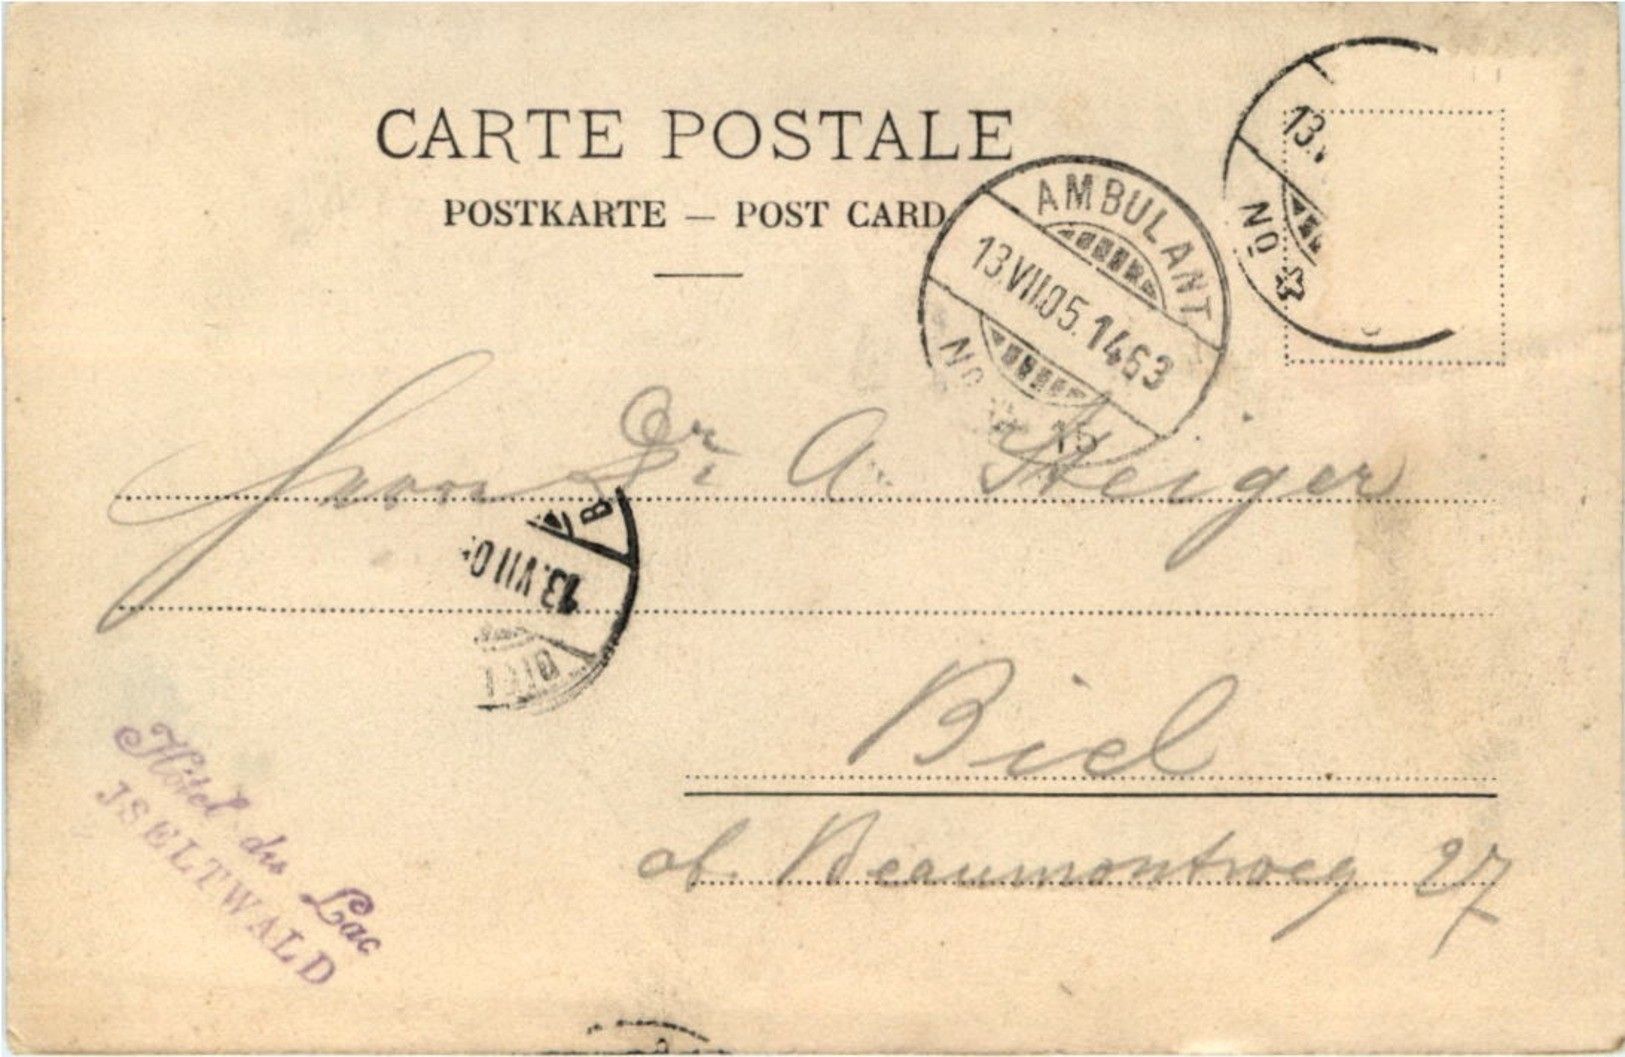 CARTE POSTALE
POSTKARTE — POST CARD
AMBULANT
13.VII.05.1463
No 15
13.V
No
Dr. A. Steiger
B
13.VII.0
BIEL
Biel
ob. Beaumontweg 27
Hôtel du Lac
ISELTWALD